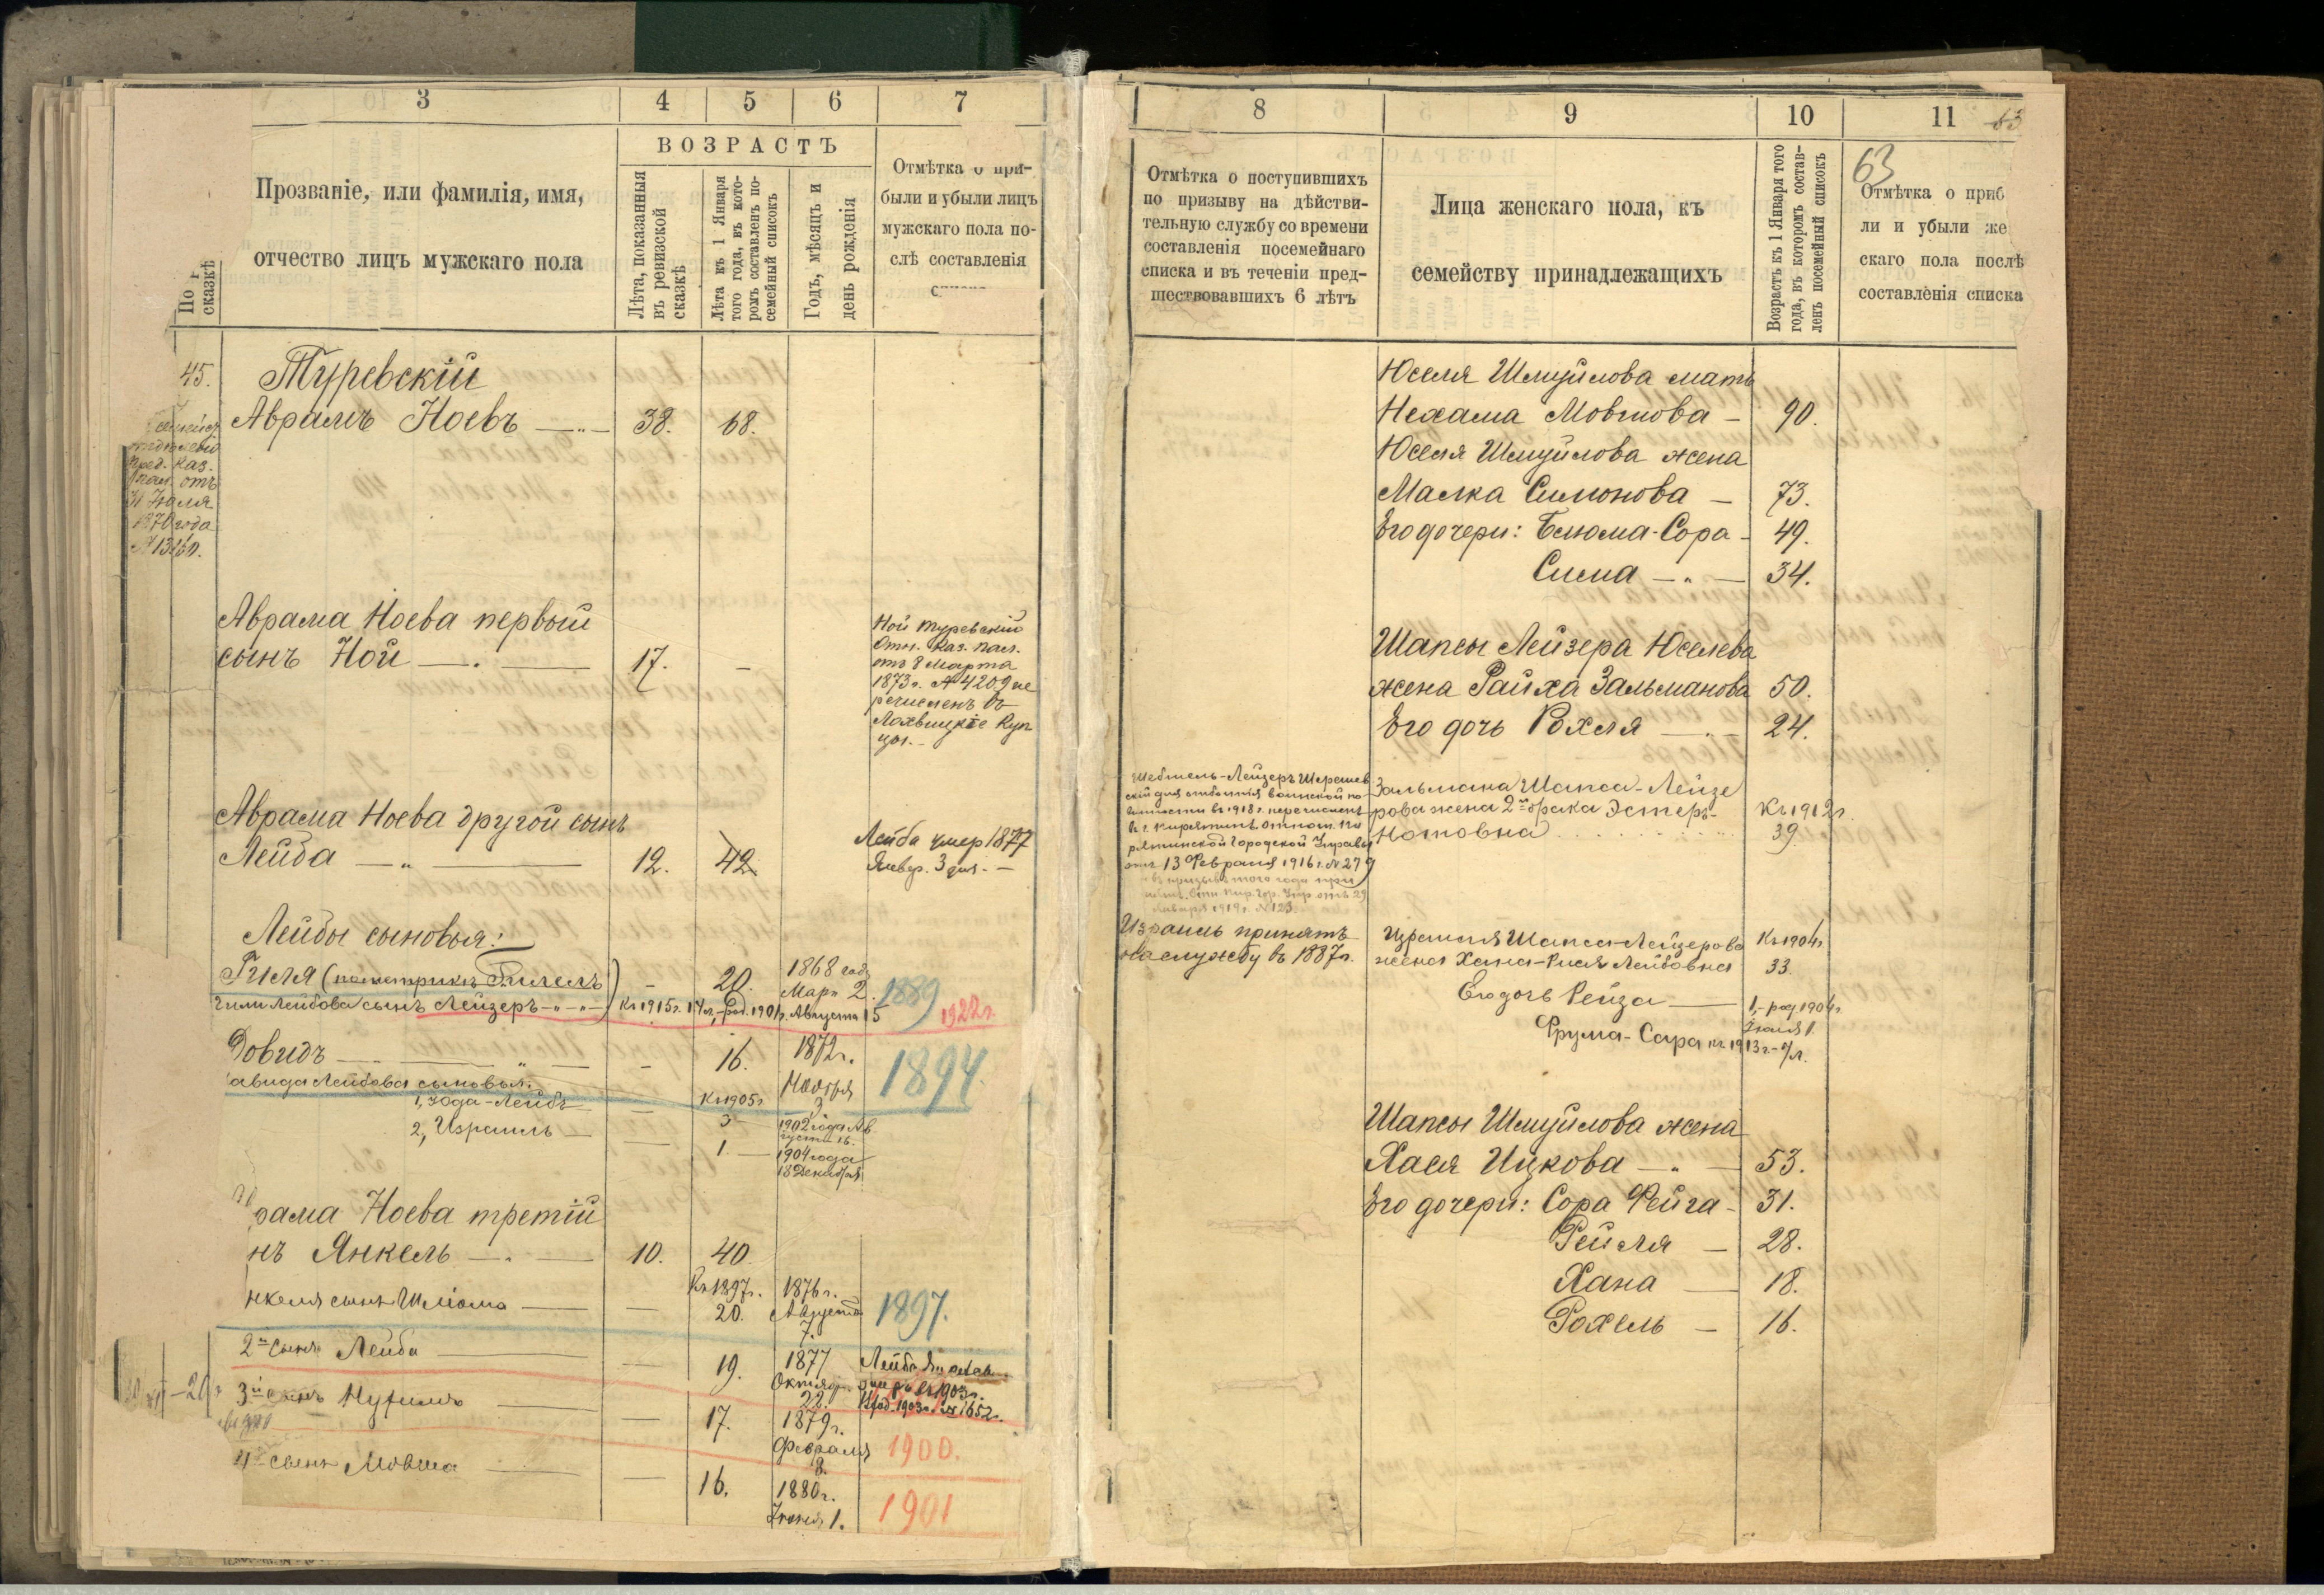 3
4
5
6
7
ВОЗРАСТЪ
Прозваніе, или фамилія, имя,
отчество лицъ мужскаго пола
сказкѣ
Лѣта, показанныя
въ ревизской
сказкѣ
Лѣта къ 1 Января
того года, въ кото-
ромъ составленъ по-
семейный списокъ
Годъ, мѣсяцъ и
день рожденія
Отмѣтка о при-
были и убыли лицъ
мужскаго пола по-
слѣ составленія
45.
Туревскій
Аврамъ Ноевъ — 38. 68.
Каз.
отъ
31 Іюля
1870 года
Аврама Ноева первый
сынъ Ной — 17. —
Ной Туревскій
Отн. Каз. Пал.
отъ 8 Марта
1873 г. № 4209 пе
речисленъ въ
Лохвицкіе Куп
цы.
Аврама Ноева другой сынъ
Лейба — 12. 42
Лейба умер 1877
Январ. 3 дня. —
Лейбы сыновья:
Гиля (по метрикѣ Гилель) — 20. 1868 года Март 2. 1889
Гили Лейбова сынъ Лейзеръ — Къ 1915 г. 14 л. род. 1901 г. Августа 15 1922 г.
Довидъ — 16. 1872 г. Ноября 3 1894.
авида Лейбова сыновья:
1, Юда-Лейбъ — Къ 1905 г. 3 1902 года Ав
густа 16.
2, Израиль — 1. — 1904 года
18 Декабря
рама Ноева третій
нъ Янкель — 10. 40.
нкеля сынъ Шліома — Къ 1897 г. 20. 1876 г. Августа 7. 1897.
2й сынъ Лейба — 19. 1877 Октябр. 22.
Лейба
умеръ въ 1903 г.
3й сынъ Нухимъ — 17. 1879 г. Февраля 8. 1900.
4й сынъ Мовша — 16. 1880 г. Іюня 1. 1901
8
9
10
11
63
63
Отмѣтка о поступившихъ
по призыву на дѣйстви-
тельную службу со времени
составленія посемейнаго
списка и въ теченіи пред-
шествовавшихъ 6 лѣтъ
Лица женскаго пола, къ
семейству принадлежащихъ
Возрастъ къ 1 Января того
года, въ которомъ состав-
ленъ посемейный списокъ
Отмѣтка о приб
ли и убыли же
скаго пола послѣ
составленія списка
Юселя Шмуйлова мать
Нехама Мовшова — 90.
Юселя Шмуйлова жена
Малка Симонова — 73.
Его дочери: Блюма-Сора - 49.
Сима — 34.
Шапсы Лейзера Юселева
жена Райха Зальманова 50.
Его дочь Рохля — 24.
Шевтель-Лейзеръ
для отбытія воинской по-
винности въ 1918 г. перечисленъ
въ г. Пирятинъ Отнош. Пи
рятинской Городской Управы
отъ 13 Февраля 1916 г. № 279
Зальмана Шапса-Лейзе
рова жена 2го брака Эстеръ- Къ 1912 г.
Нотовна 39.
Израиль принятъ
на службу въ 1887 г.
Израиля Шапса-Лейзерова Къ 1904 г.
жена Хана-Рися Лейбовна 33.
Его дочь Рейза — 1, - род. 1904 г.
Фрума-Сара къ 1913 г. -
Шапсы Шмуйлова жена
Хася Ицкова — 53.
Его дочери: Сора Фейга - 31.
Рейля — 28.
Хана — 18.
Рохель — 16.